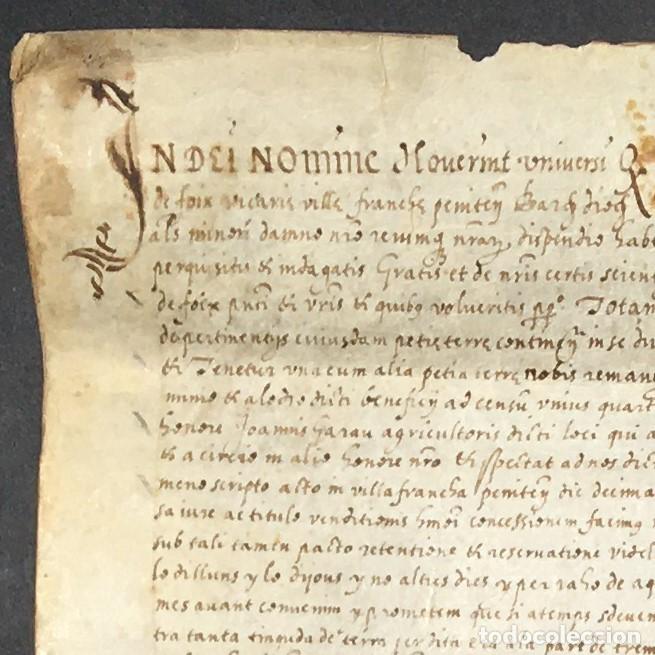 IN DEI NOmine Noverint vniversi Q
de foix vicarie ville franche peniten Barc dioc
als minori damno nro reiumq nrar dispendio habe
perquisitis et indagatis Gratis et de nris certis scien
de foix pnti et vris et quibq volueritis ppo. Totam
de pertinentijs eiusdam petie terre continen in se du
et Tenetur vna cum alia petia terre nobis remane
minio et alodio dicti beneficij ad censu vnius quart
honore Joannis agricultoris dicti loci qui a
et a circio in alio honore nro et spectat ad nos dict
meno scripto acto in villafrancha peniten die decima
sa iure ac titulo venditionis hmoi concessionem facimq
sub tali tamen pacto retentione et reservatione videl
lo dilluns y lo dijous y no altres dies y per raho de aq
mes avant convenim y prometem que si a temps sdeven
tra tanta tinguda de terra per dita de la part de trem
todocoleccion